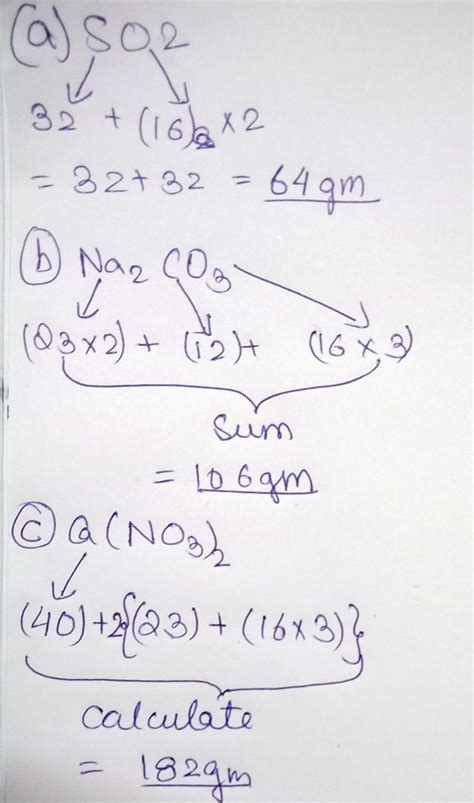 (a) SO2
32 + (16)2 × 2
= 32 + 32 = 64gm
(b) Na2 CO3
(23×2) + (12) + (16 × 3)
Sum
= 106gm
(c) Ca(NO3)2
(40)+2{(23) + (16×3)}
Calculate
= 182gm